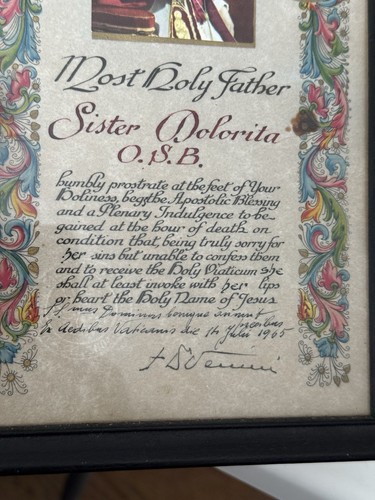 Most Holy Father
Sister Dolorita
O.S.B.
humbly prostrate at the feet of Your
Holiness, begs the Apostolic Blessing
and a Plenary Indulgence to be
gained at the hour of death on
condition that being truly sorry for
her sins but unable to confess them
and to receive the Holy Viaticum she
shall at least invoke with her lips
or heart the Holy Name of Jesus
Dominus benigne annuit
Ex Aedibus Vaticanis die 14
1965